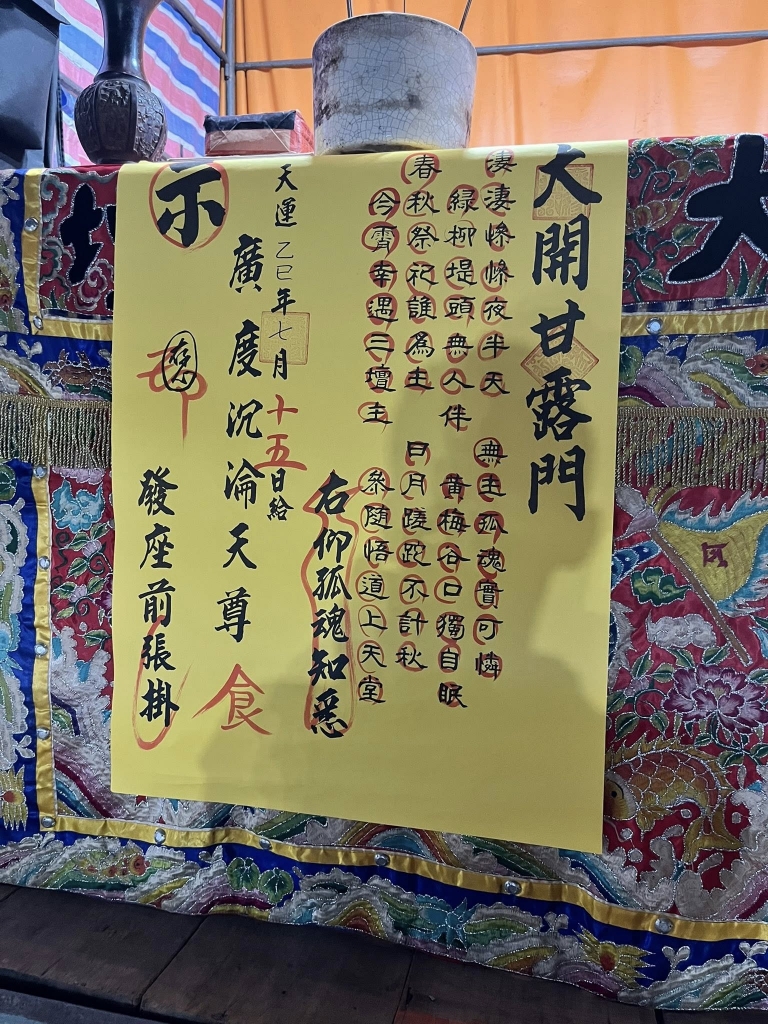 大開甘露門
淒淒慘慘夜半天　無主孤魂實可憐
綠柳堤頭無人伴　黃梅谷口獨自眠
春秋祭祀誰為主　日月陵跎不計秋
今霄幸遇三壇主　叅隨悟道上天堂
右仰孤魂知悉
天運乙巳年七月十五日給
廣度沉淪天尊　食
示
發座前張掛